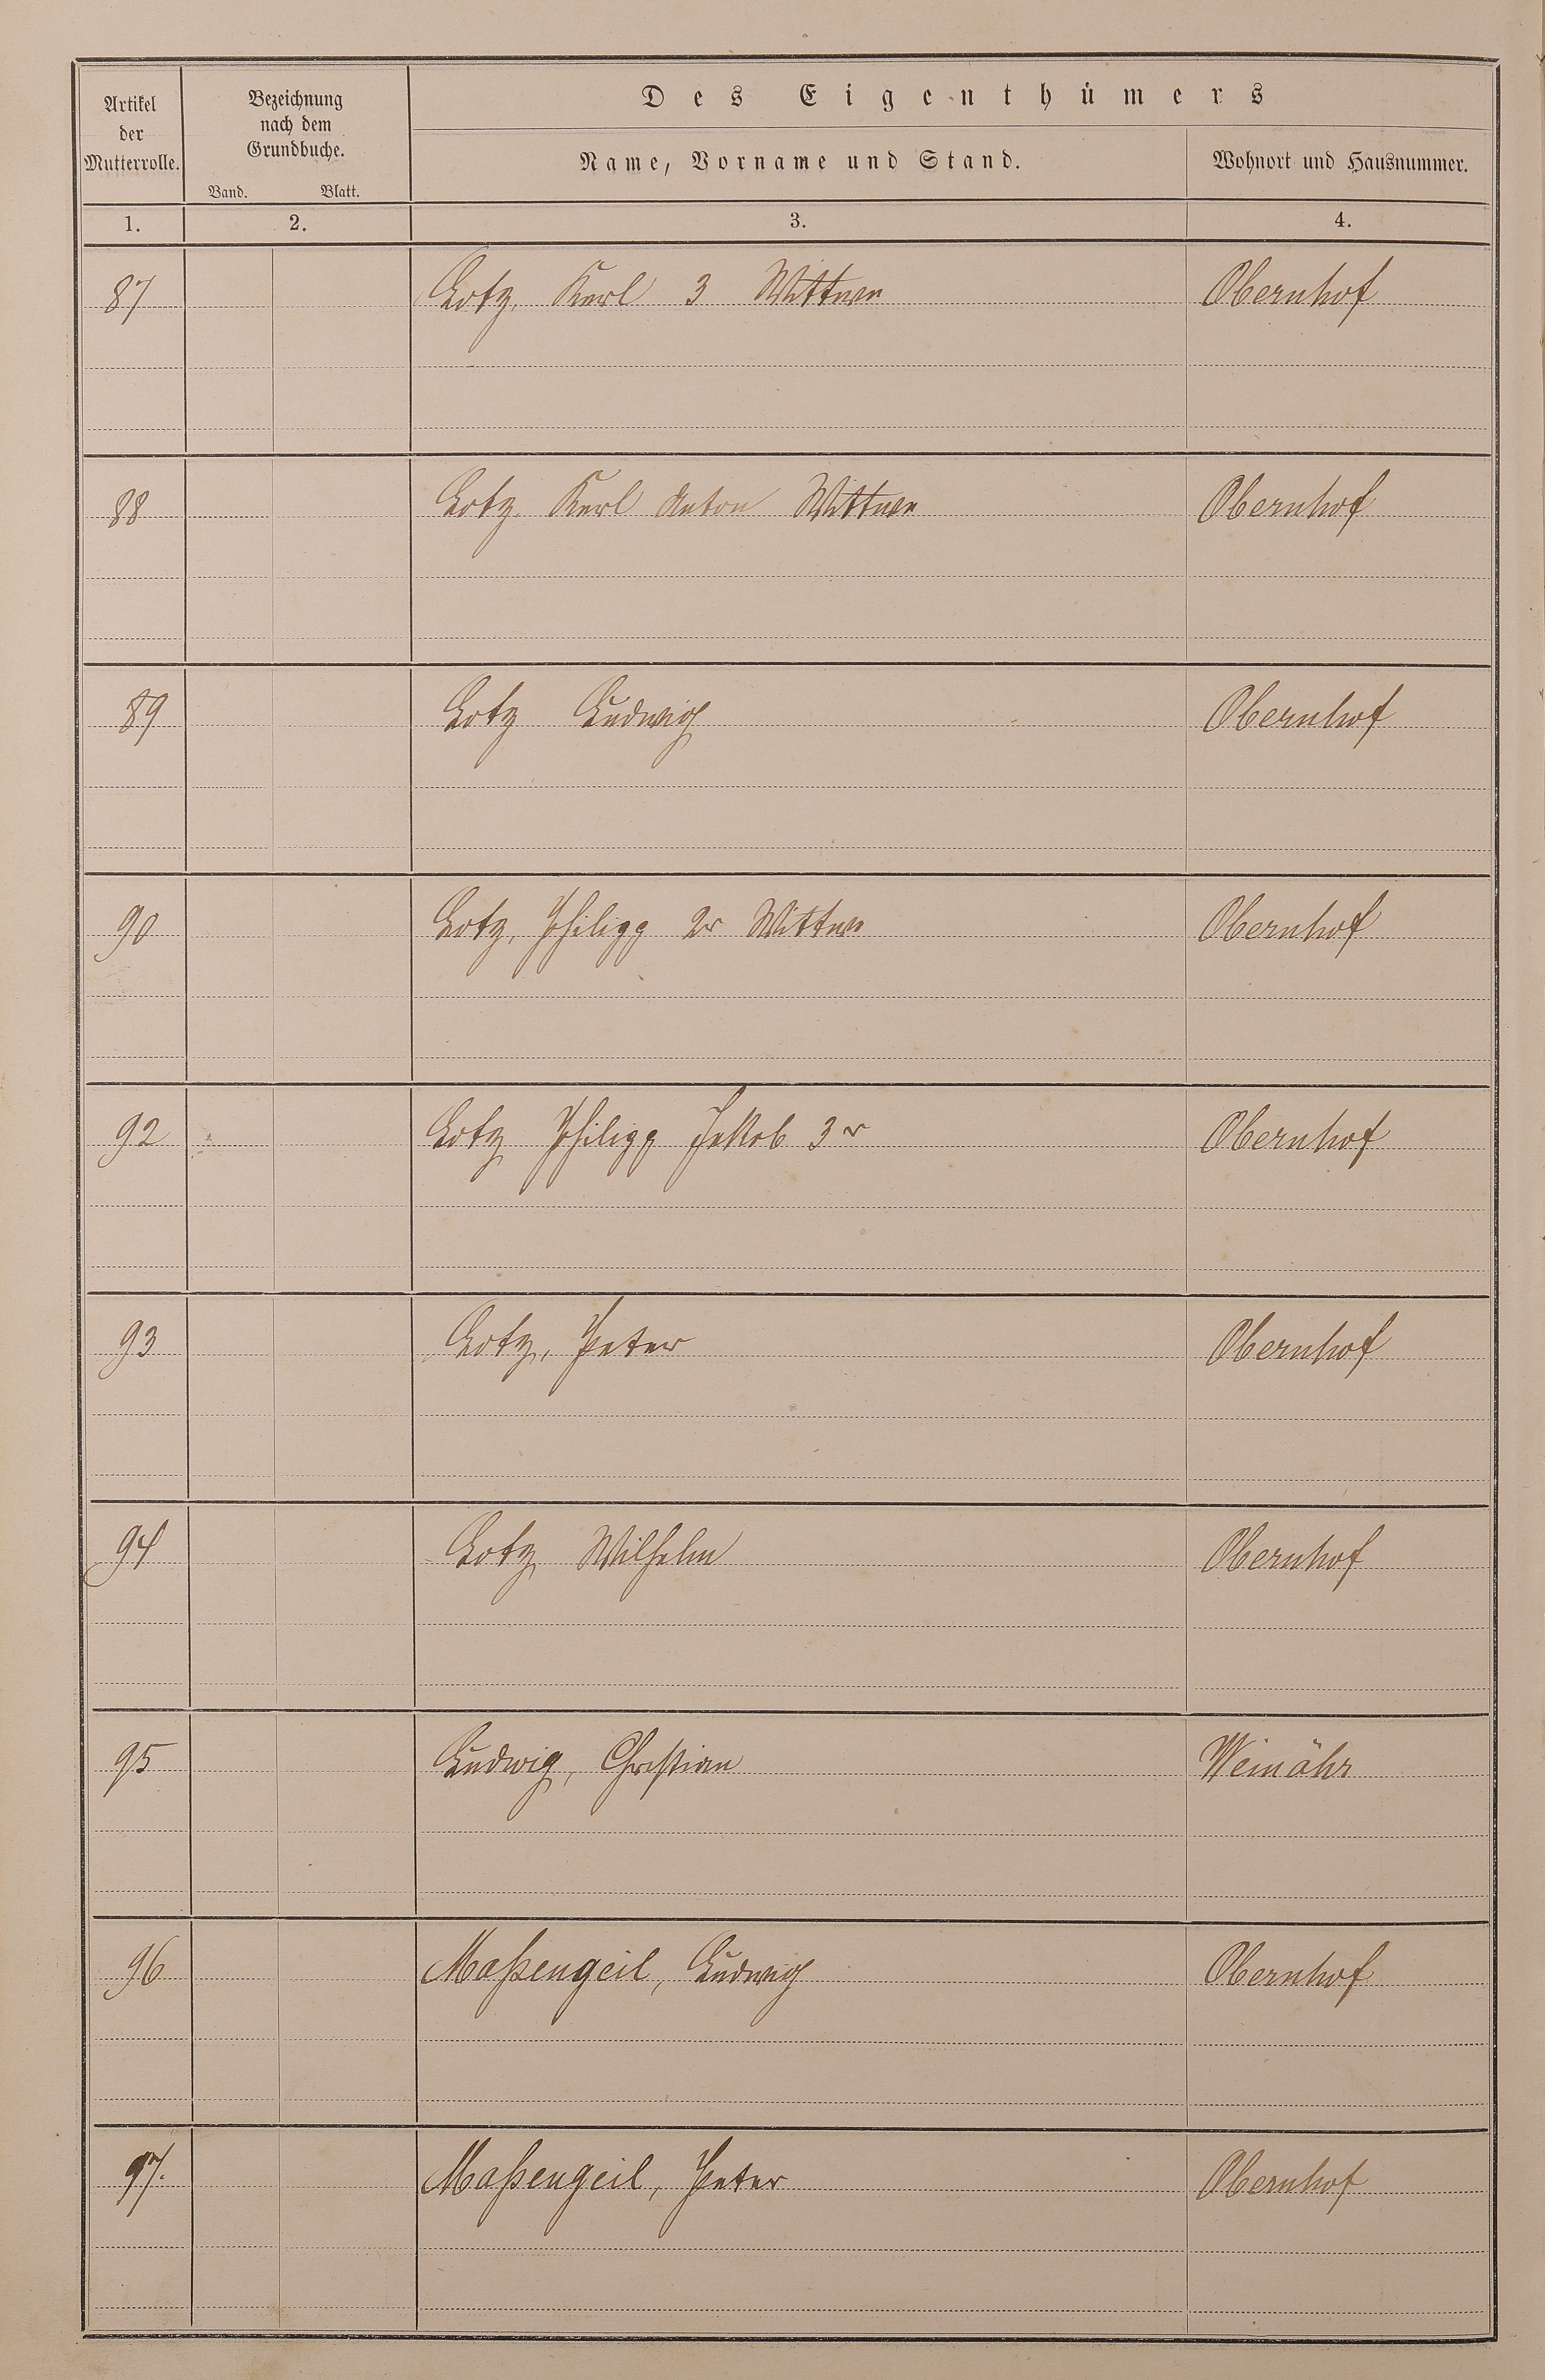 Artikel der Mutterrolle. Bezeichnung nach dem Grundbuche. Band. Blatt. Des Eigenthümers
Name, Vorname und Stand. Wohnort und Hausnummer.
1. 2. 3. 4.
87 Lotz, Karl 3 Wittwe Obernhof
88 Lotz, Karl Anton Wittwe Obernhof
89 Lotz Ludwig Obernhof
90 Lotz, Philipp 2r Wittwe Obernhof
92 Lotz Philipp Jakob 3r Obernhof
93 Lotz, Peter Obernhof
94 Lotz Wilhelm Obernhof
95 Ludwig, Christian Weinähr
96 Maßengeil, Ludwig Obernhof
97. Maßengeil, Peter Obernhof